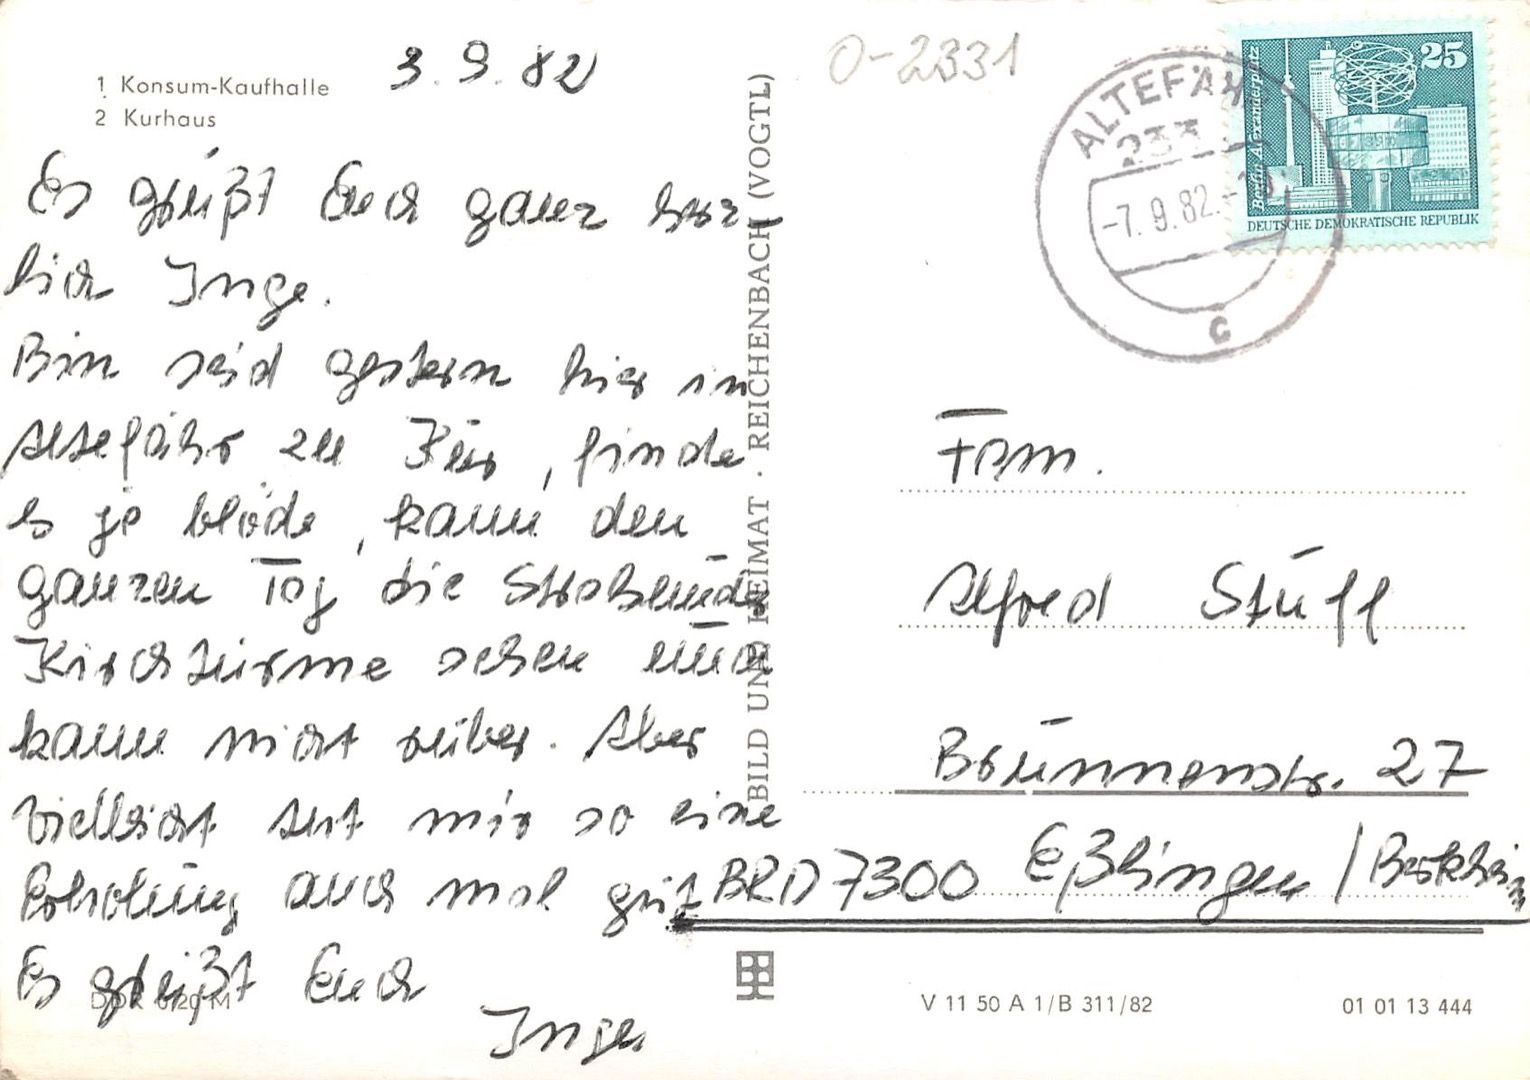 1 Konsum-Kaufhalle
2 Kurhaus
3. 9. 82
Es grüßt Euch ganz herz-
lich Inge.
Bin seid gestern hier in
Altefähr zu Kur, finde
es ja blöde, kann den
ganzen Tag die Stralsunder
Kirchtürme sehen und
kann nicht rüber. Aber
vielleicht tut mir so eine
Erholung auch mal gut
Es grüßt Euch
Inge
DDR 0,20 M
BILD UND HEIMAT · REICHENBACH (VOGTL)
O-2331
ALTEFÄHR
233
-7. 9. 82
c
Berlin Alexanderplatz
25
DEUTSCHE DEMOKRATISCHE REPUBLIK
Fam.
Alfred Stüll
Brunnenstr. 27
BRD 7300 Eßlingen / Berkheim
V 11 50 A 1/B 311/82
01 01 13 444